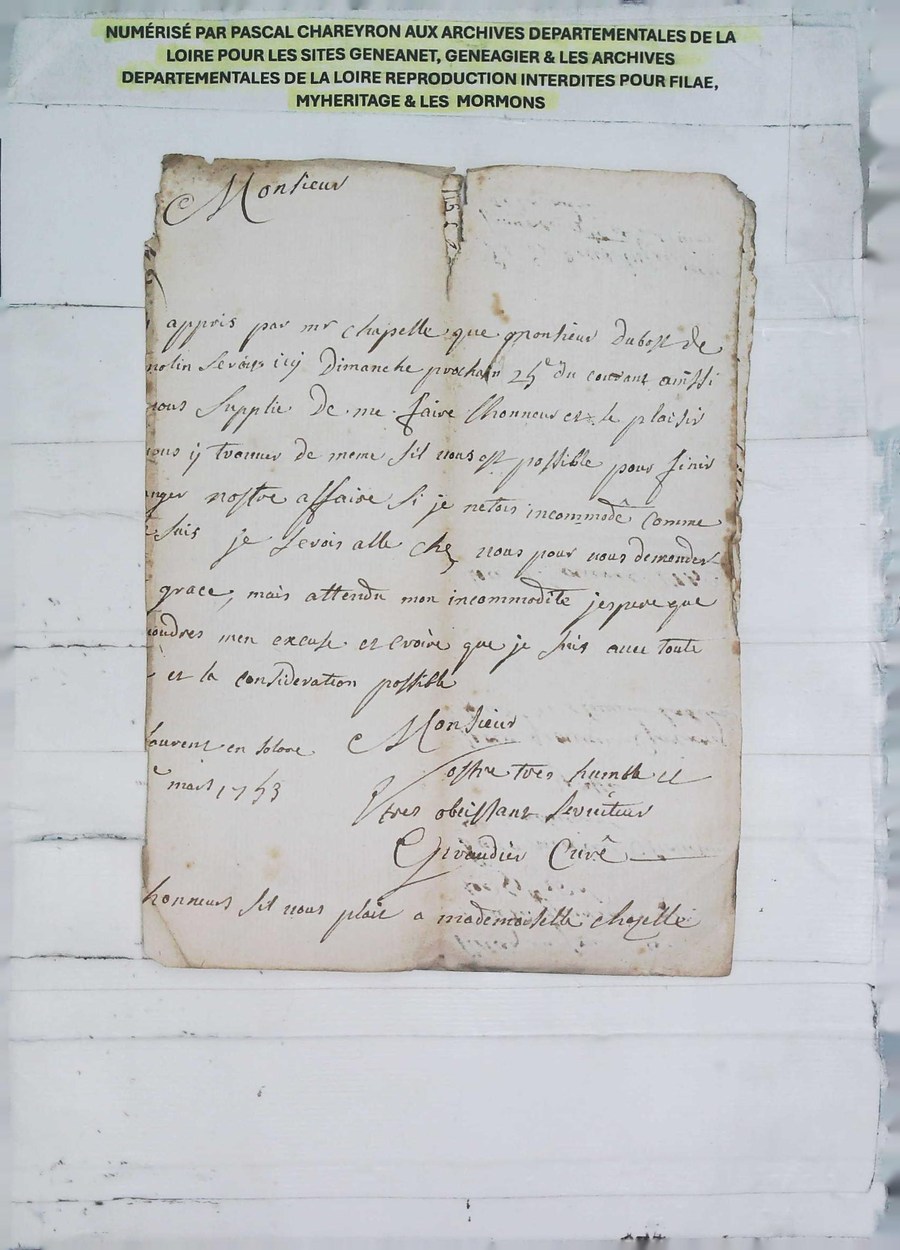 NUMÉRISÉ PAR PASCAL CHAREYRON AUX ARCHIVES DEPARTEMENTALES DE LA
LOIRE POUR LES SITES GENEANET, GENEAGIER & LES ARCHIVES
DEPARTEMENTALES DE LA LOIRE REPRODUCTION INTERDITES POUR FILAE,
MYHERITAGE & LES MORMONS
Monsieur
appris par mr chapelle que monsieur dubost de
molin serois icy Dimanche prochain 25e du courant ainssi
vous supplie de me faire lhonneur et le plaisir
vous y trouver de meme sil vous est possible pour finir
nger nostre affaire si je netois incommodé comme
suis je serois alle chez vous pour vous demender
grace, mais attendu mon incommodite jespere que
voudres men excuse et croire que je suis avec toute
et la consideration possible
Monsieur
laurent en solore
ostre tres humble et
mars 1753
tres obeissant serviteur
Giraudier Curé
honneurs sil vous plait a mademoiselle chapelle